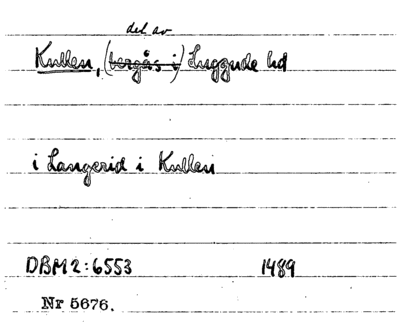 del av
Kullen, (bergås i) Luggude hd
i Langerid i Kullen
DBM2:6553 1489
Nr 5676.